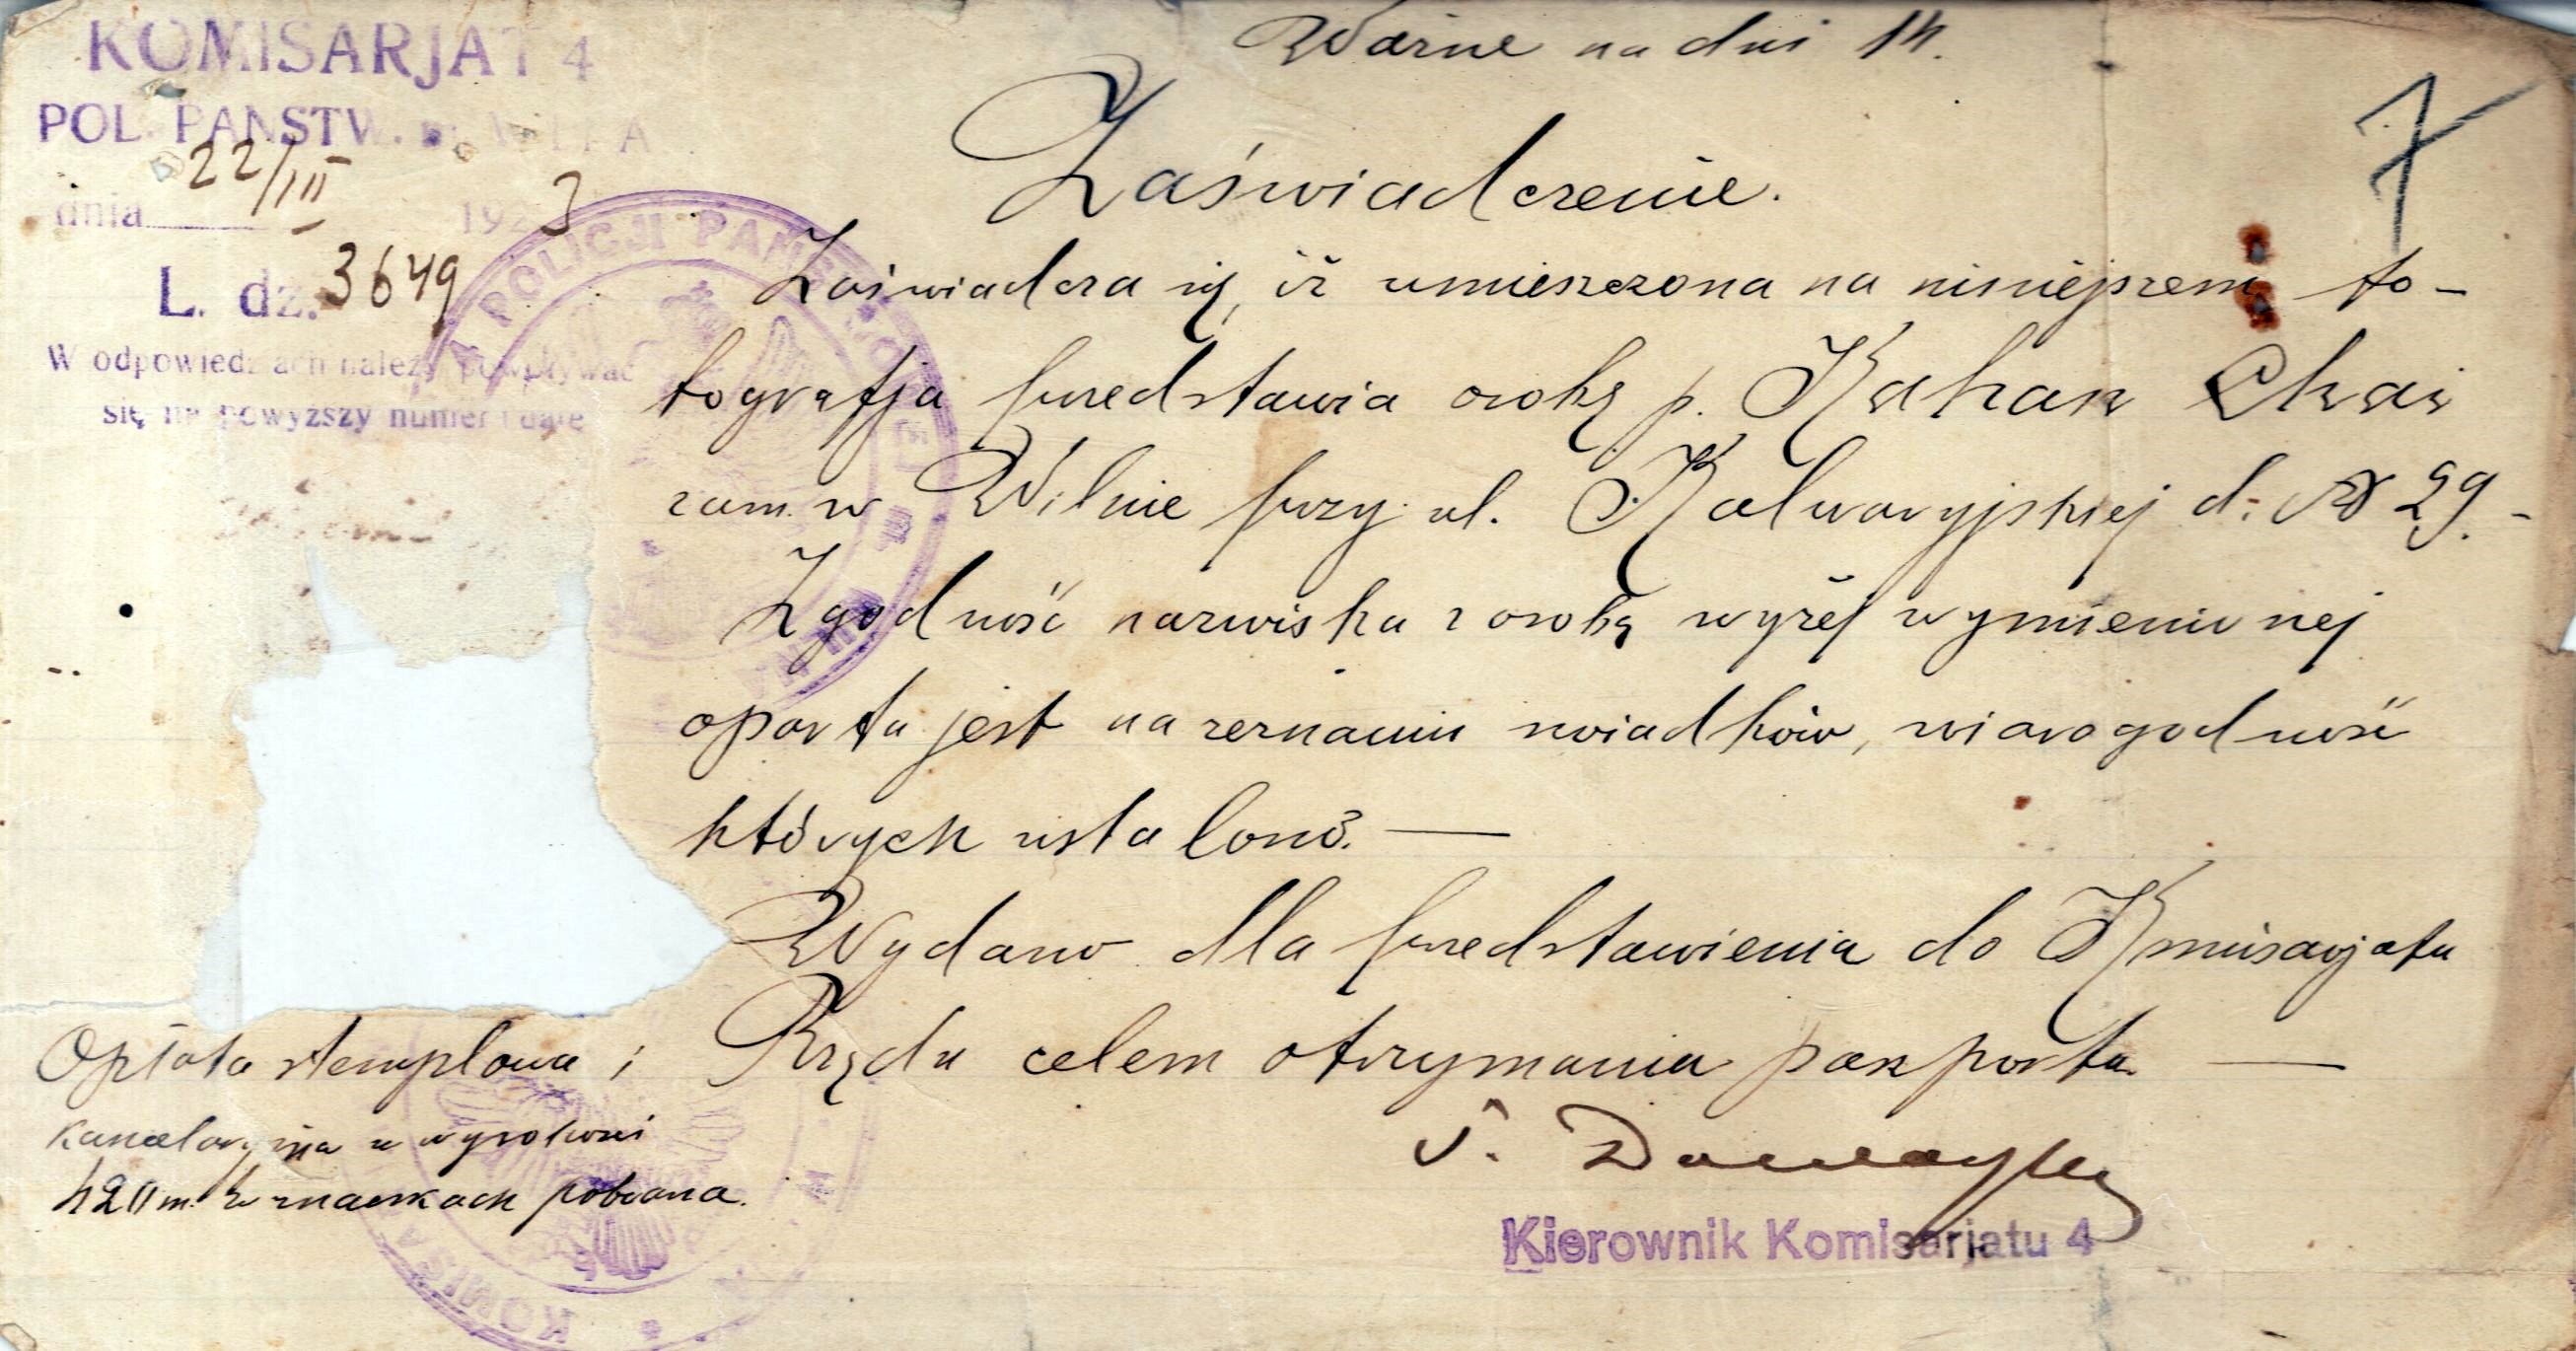 KOMISARJAT 4
POL. PAŃSTW. m. WILNA
dnia 22/III 1923
L. dz. 3649
W odpowiedziach należy powoływać
się na powyższy numer i datę
Ważne na dni 14.
7
Zaświadczenie.
Zaświadcza się, iż umieszczona na niniejszem fo-
tografja przedstawia osobę p. Kahan Chai
zam. w Wilnie przy ul. Kalwaryjskiej d. № 29.-
Zgodność nazwiska z osobą wyżej wymienionej
oparta jest na zeznaniu świadków, wiarogodność
których ustalono. —
Wydano dla przedstawienia do Komisarjatu
Rządu celem otrzymania paszportu —
Kierownik Komisarjatu 4
Opłata stemplowa i
kancelaryjna w wysokości
w znaczkach pobrana.
POLICJI PAŃSTWOWEJ
KOMISA